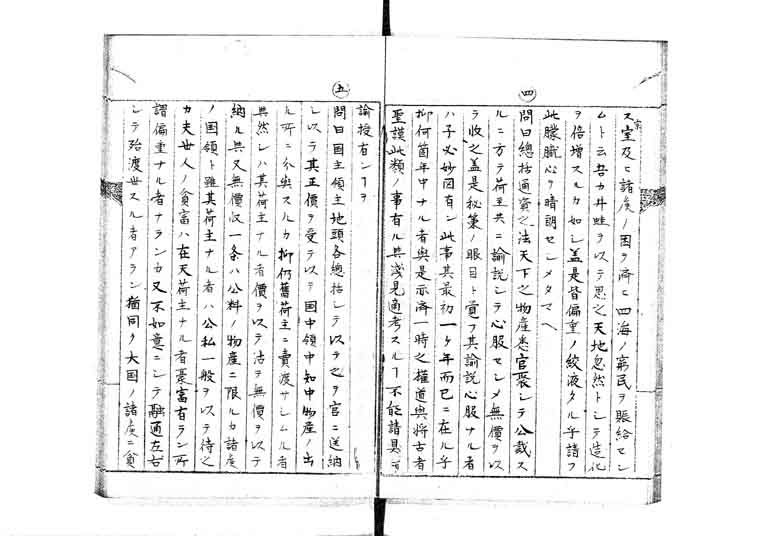 四
ス室及ヒ諸矦ノ困ヲ濟ヒ四海ノ窮民ヲ賑給セン
ムト云吾カ井蛙ヲ以テ思之天地忽然トシテ造化
ヲ倍増スルカ如シ盖是皆偏重ノ餘液タル乎請フ
此朦朧心ヲ晴朗センメタマヘ
問曰總括通資之法天下之物産悉官聚シテ公裁ス
ルニ方テ荷主共ニ諭説シテ心服セシメ無價ヲ以
テ收之盖是秘策ノ眼目ト覚フ其諭説心服ナル者
ハ子必妙図有ン此事其最初一ケ年而已ニ在ル乎
抑何箇年中ナル者與是亦濟一時之権道與将古者
聖謨此類ノ事有ル與淺見通考スルヿ不能請具ニ
五
諭授有ンヿヲ
問曰国主領主地頭各總括シテ以テ之ヲ官ニ送納
シ以テ其正價ヲ受テ以テ国中領中知中物産ノ出
ル所ニ分與スルカ抑仍舊荷主ニ賣渡サシムル者
與然レハ其荷主ナル者價ヲ以テ沽ヲ無價ヲ以テ
納ル與又無價収一条ハ公料ノ物産ニ限ルカ諸矦
ノ国領ト雖其荷主ナル者ハ公私一般ヲ以テ待之
カ夫世人ノ貧富ハ在天荷主ナル者豪富有ラン所
謂偏重ナル者ナランカ又不如意ニシテ融通左右
シテ殆渡世スル者アラン猶同ク大国ノ諸矦ニ貧